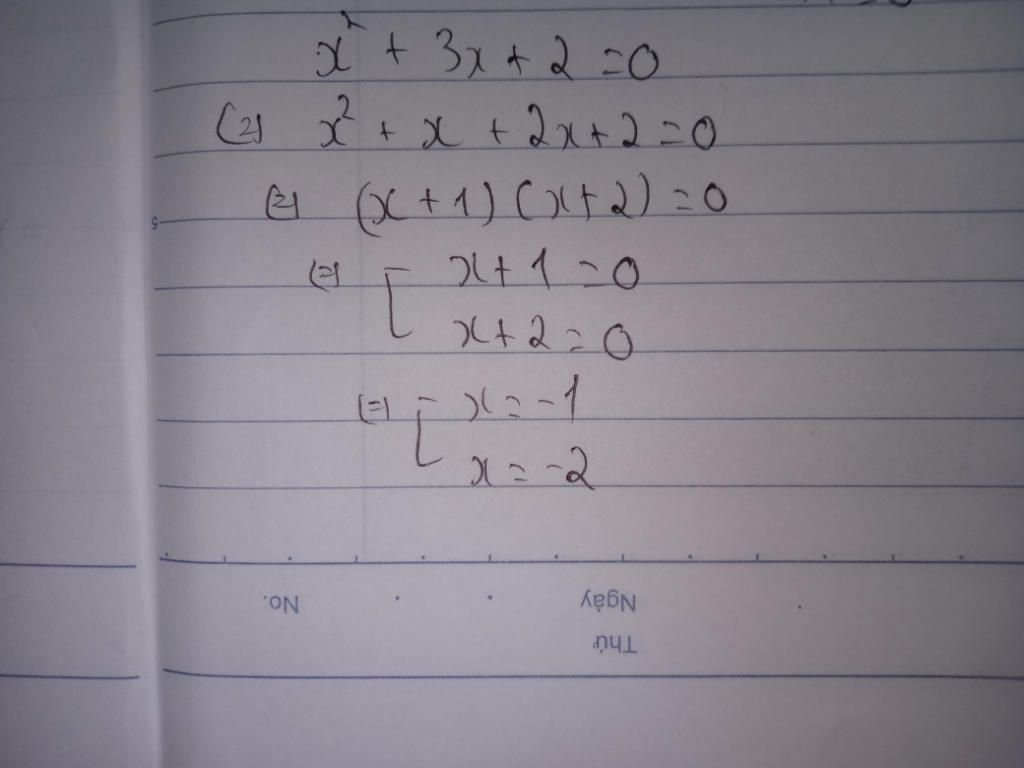 x² + 3x + 2 = 0
(=) x² + x + 2x + 2 = 0
(=) (x + 1) (x + 2) = 0
(=) [ x + 1 = 0
x + 2 = 0
(=) [ x = -1
x = -2
No.
Ngày
Thứ